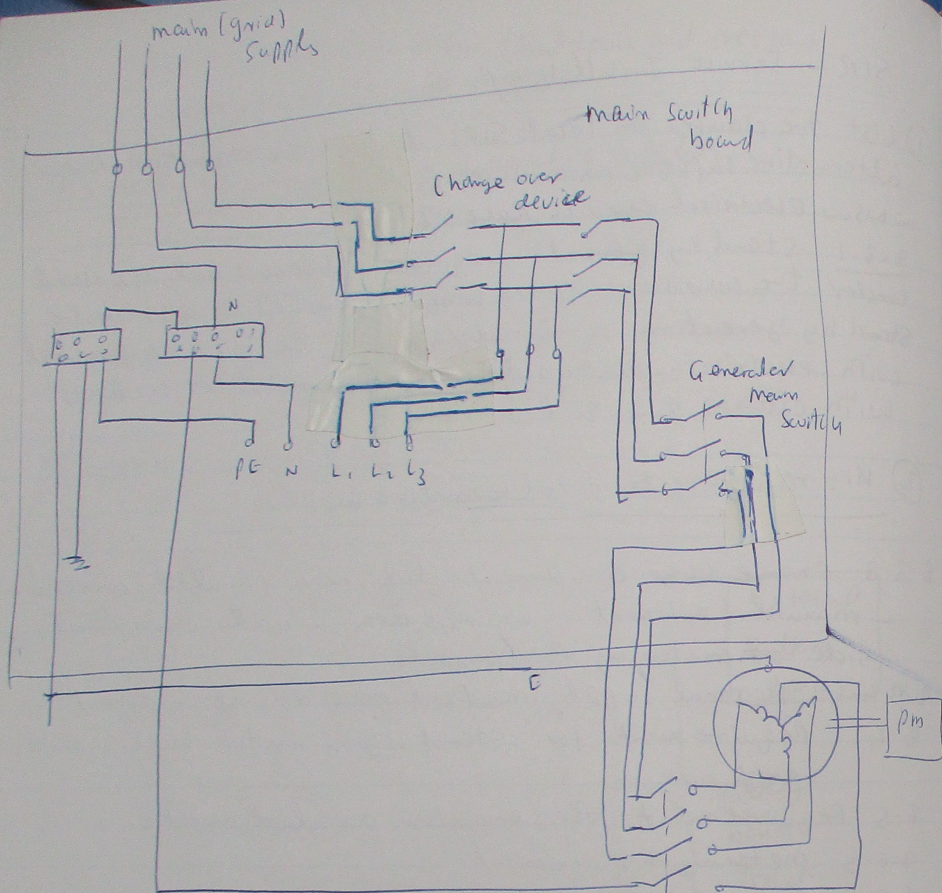 main (grid)
supply
main switch
board
Change over
device
N
Generator
main
switch
PE N L1 L2 L3
E
PM